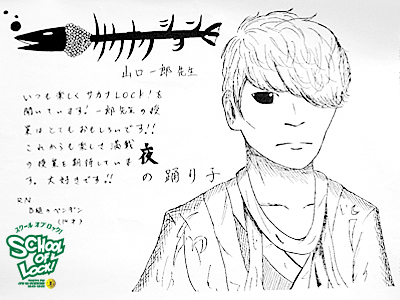 山口一郎 先生
いつも楽しくサカナLOCK!を
聞いています!一郎先生の授
業はとてもおもしろいです!!
これからも楽しさ満載
の授業を期待していま
す。大好きです!!
夜
の踊り子
RN
ペンギン
スクール オブ ロック!
SCHOOL
OF
LOCK!